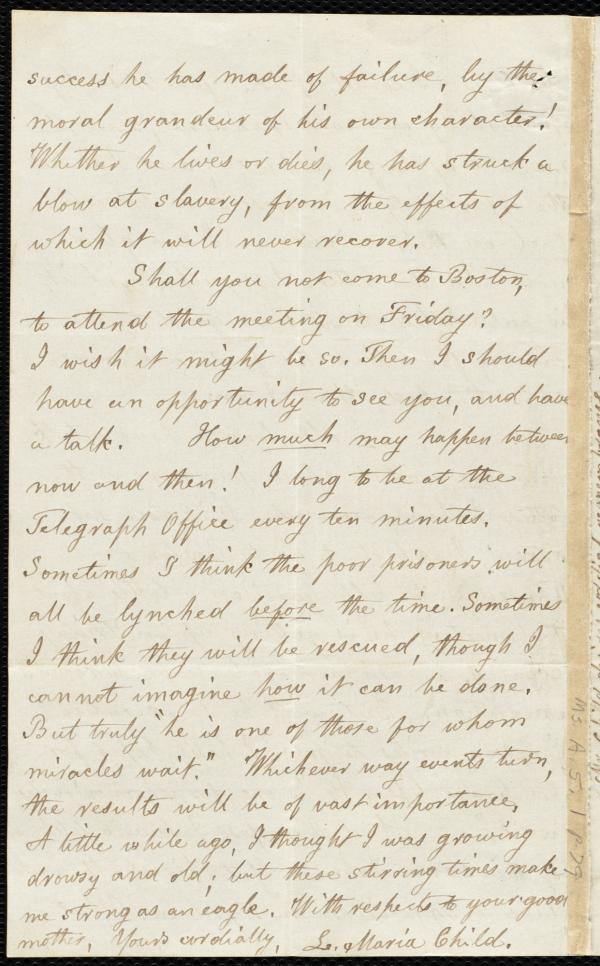 success he has made of failure, by the
moral grandeur of his own character!
Whether he lives or dies, he has struck a
blow at slavery, from the effects of
which it will never recover.
Shall you not come to Boston,
to attend the meeting on Friday?
I wish it might be so. Then I should
have an opportunity to see you, and have
a talk. How much may happen between
now and then! I long to be at the
Telegraph Office every ten minutes.
Sometimes I think the poor prisoners will
all be lynched before the time. Sometimes
I think they will be rescued, though I
cannot imagine how it can be done.
But truly "he is one of those for whom
miracles wait." Whichever way events turn,
the results will be of vast importance.
A little while ago, I thought I was growing
drowsy and old; but these stirring times make
me strong as an eagle. With respects to your good
mother, Yours cordially, L. Maria Child.
Ms. A. 5. 1 p. 79